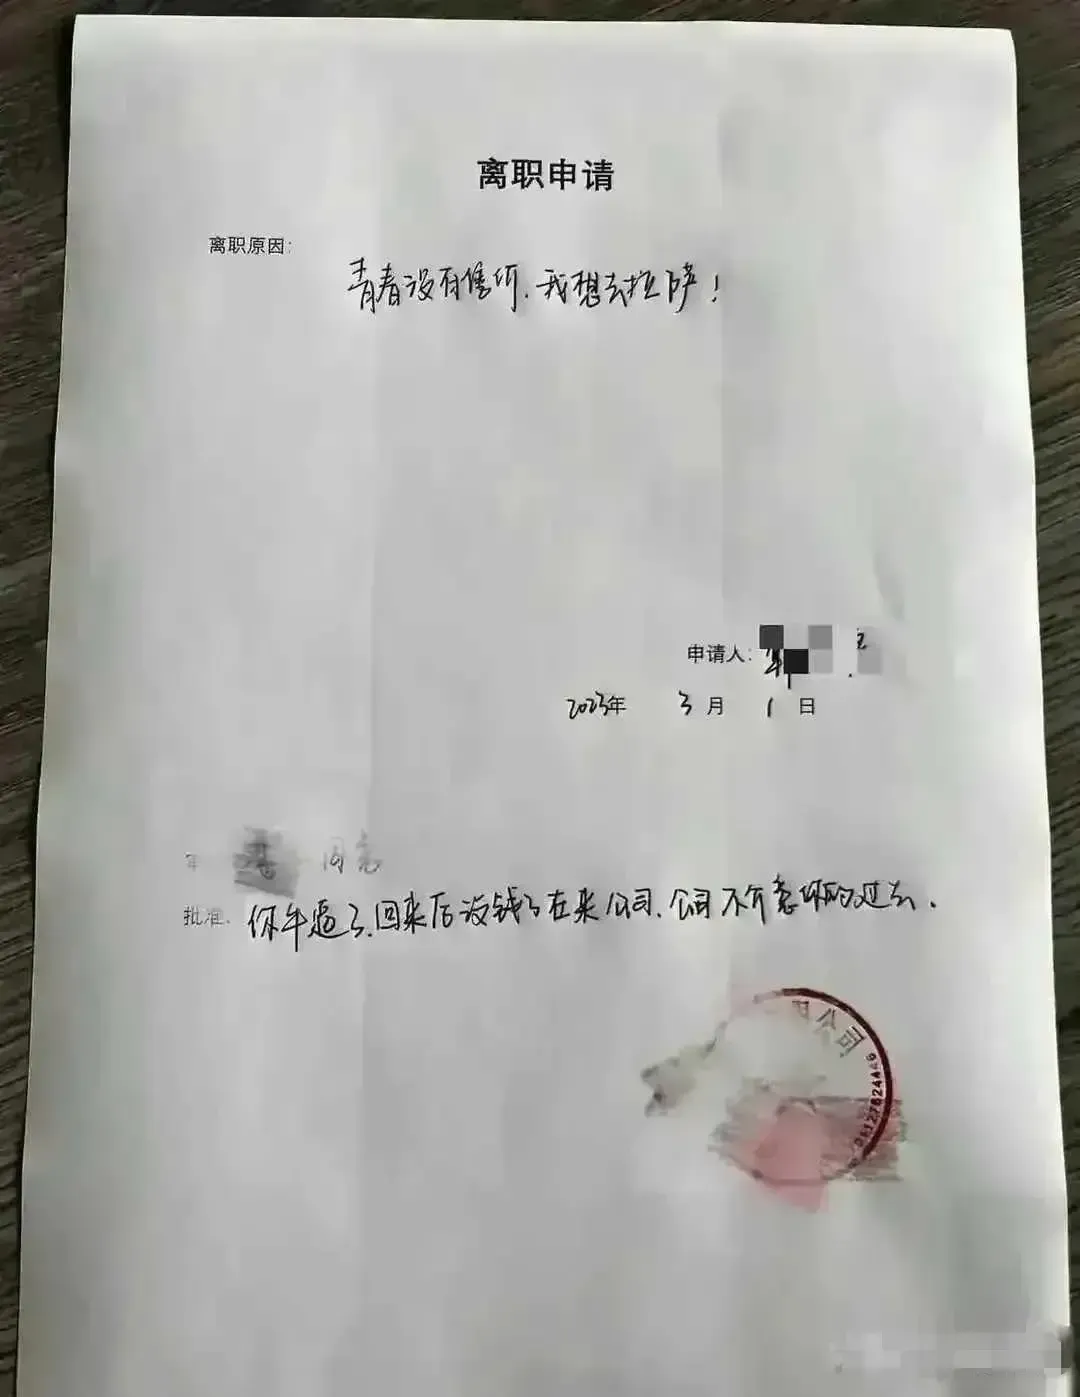 离职申请
离职原因:
青春没有售价.我想去拉萨!
申请人:
2023年 3月 1日
同意
批准. 你牛逼了.回来后没钱了在来公司.公司不介意你的过去.
公司